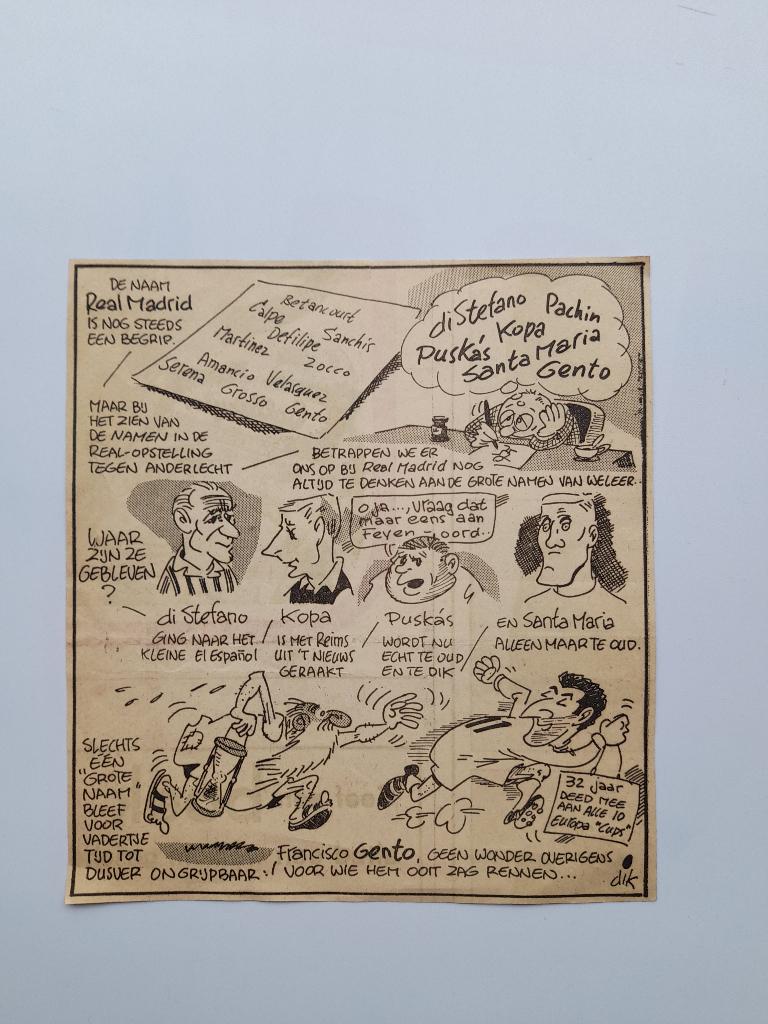 DE NAAM
Real Madrid
IS NOG STEEDS
EEN BEGRIP.
Betancourt
Calpe Sanchis
Defilipe
Martinez Zocco
Amancio Velasquez
Serena Grosso Gento
di Stefano Pachin
Puskás Kopa
Santa Maria
Gento
MAAR BIJ
HET ZIEN VAN
DE NAMEN IN DE
REAL-OPSTELLING
TEGEN ANDERLECHT
BETRAPPEN WE ER
ONS OP BIJ Real Madrid NOG
ALTIJD TE DENKEN AAN DE GROTE NAMEN VAN WELEER..
WAAR
ZIJN ZE
GEBLEVEN
?
O ja..., vraag dat
maar eens aan
Feyen-oord..
di Stefano
GING NAAR HET
KLEINE El Español
Kopa
IS MET Reims
UIT 'T NIEUWS
GERAAKT
Puskás
WORDT NU
ECHT TE OUD
EN TE DIK
EN Santa Maria
ALLEEN MAAR TE OUD.
SLECHTS
EÉN
"GROTE
NAAM"
BLEEF
VOOR
VADERTJE
TIJD TOT
DUSVER ONGRIJPBAAR:
32 jaar
DEED MEE
AAN ALLE 10
EUROPA "CUPS"
Francisco Gento, GEEN WONDER OVERIGENS
VOOR WIE HEM OOIT ZAG RENNEN...
dik